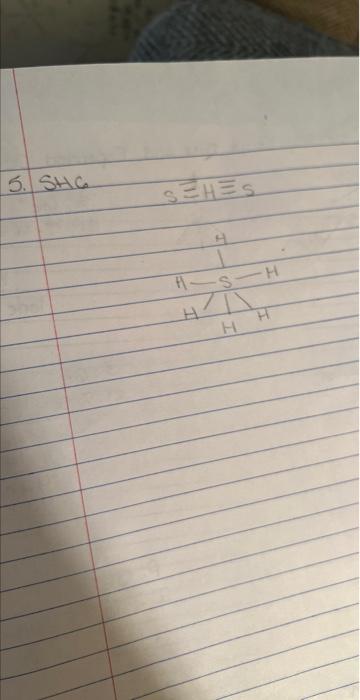 5. SH6
S≡H≡S
H
H—S—H
H H H